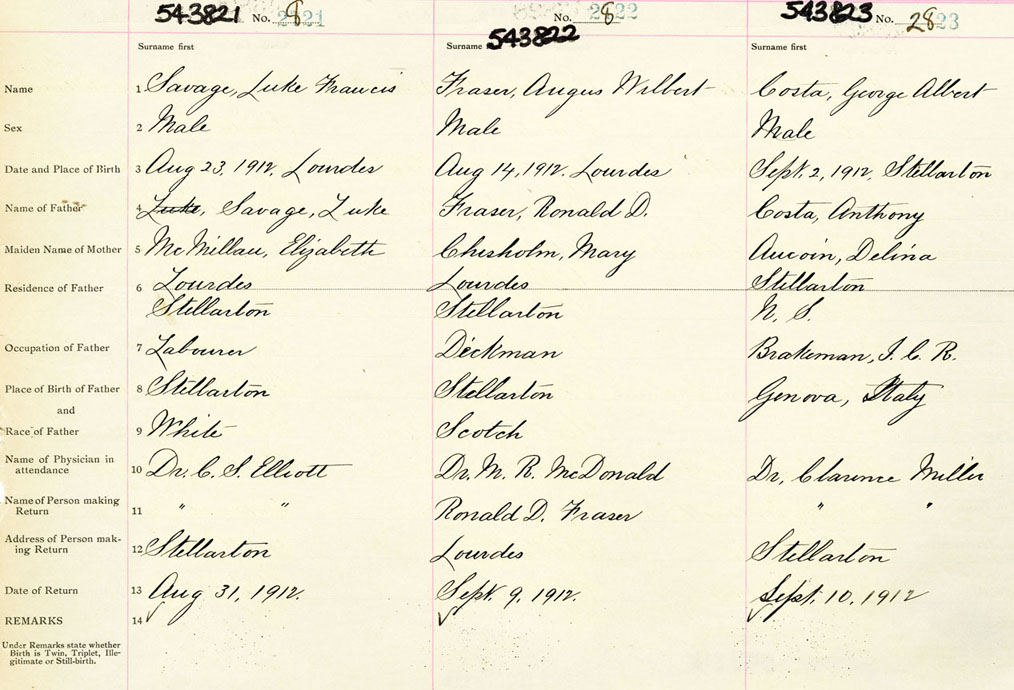 543821 No. 2821
543822 No. 2822
543823 No. 2823
Surname first Surname first Surname first
Name 1 Savage, Luke Francis Fraser, Angus Wilbert Costa, George Albert
Sex 2 Male Male Male
Date and Place of Birth 3 Aug 23, 1912, Lourdes Aug 14, 1912. Lourdes Sept. 2, 1912, Stellarton
Name of Father 4 Luke, Savage, Luke Fraser, Ronald D. Costa, Anthony
Maiden Name of Mother 5 McMillan, Elizabeth Chisholm, Mary Aucoin, Delina
Residence of Father 6 Lourdes Lourdes Stellarton
Stellarton Stellarton N. S.
Occupation of Father 7 Labourer Deckman Brakeman, I. C. R.
Place of Birth of Father 8 Stellarton Stellarton Genova, Italy
and
Race of Father 9 White Scotch
Name of Physician in
attendance 10 Dr. C. S. Elliott Dr. M. R. McDonald Dr. Clarence Miller
Name of Person making
Return 11 " " Ronald D. Fraser " "
Address of Person mak-
ing Return 12 Stellarton Lourdes Stellarton
Date of Return 13 Aug 31, 1912. Sept. 9, 1912. Sept. 10, 1912
REMARKS 14 ✓ ✓ ✓
Under Remarks state whether
Birth is Twin, Triplet, Ille-
gitimate or Still-birth.